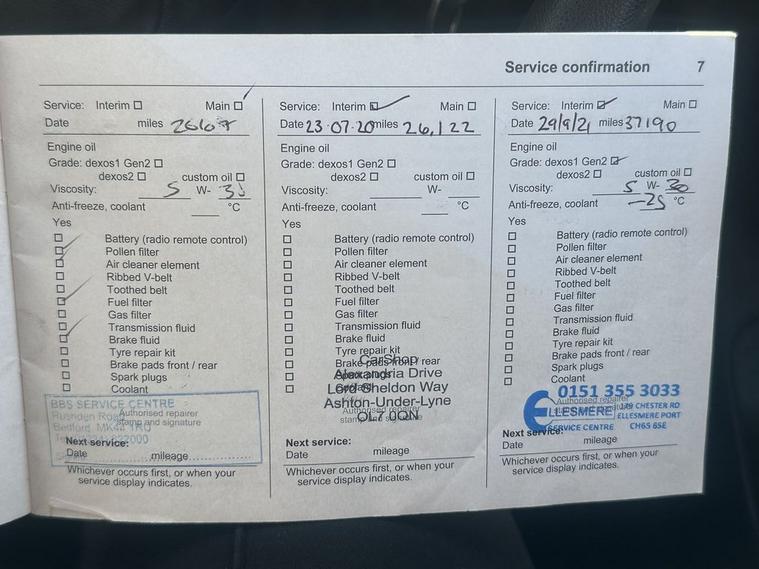 Service confirmation 7
Service: Interim ☐ Main ☐
Date miles
Engine oil
Grade: dexos1 Gen2 ☐
dexos2 ☐ custom oil ☐
Viscosity: 5 W-
Anti-freeze, coolant °C
Yes
☐ Battery (radio remote control)
☐ Pollen filter
☐ Air cleaner element
☐ Ribbed V-belt
☐ Toothed belt
☐ Fuel filter
☐ Gas filter
☐ Transmission fluid
☐ Brake fluid
☐ Tyre repair kit
☐ Brake pads front / rear
☐ Spark plugs
☐ Coolant
BBS SERVICE CENTRE
Authorised repairer
stamp and signature
Bedford
Next service:
Date mileage
Whichever occurs first, or when your
service display indicates.
Service: Interim ☐ Main ☐
Date 23.07.20 miles 26,122
Engine oil
Grade: dexos1 Gen2 ☐
dexos2 ☐ custom oil ☐
Viscosity: W-
Anti-freeze, coolant °C
Yes
☐ Battery (radio remote control)
☐ Pollen filter
☐ Air cleaner element
☐ Ribbed V-belt
☐ Toothed belt
☐ Fuel filter
☐ Gas filter
☐ Transmission fluid
☐ Brake fluid
☐ Tyre repair kit
☐ Brake pads front / rear
CarShop
Alexandria Drive
Lord Sheldon Way
Ashton-Under-Lyne
Authorised repairer
stamp and signature
OL7 0QN
Next service:
Date mileage
Whichever occurs first, or when your
service display indicates.
Service: Interim ☐ Main ☐
Date 29/9/21 miles 37190
Engine oil
Grade: dexos1 Gen2 ☐
dexos2 ☐ custom oil ☐
Viscosity: 5 W- 30
Anti-freeze, coolant -25 °C
Yes
☐ Battery (radio remote control)
☐ Pollen filter
☐ Air cleaner element
☐ Ribbed V-belt
☐ Toothed belt
☐ Fuel filter
☐ Gas filter
☐ Transmission fluid
☐ Brake fluid
☐ Tyre repair kit
☐ Brake pads front / rear
☐ Spark plugs
☐ Coolant
0151 355 3033
Authorised repairer
ELLESMERE CHESTER RD
ELLESMERE PORT
SERVICE CENTRE CH65 6SE
Next service:
Date mileage
Whichever occurs first, or when your
service display indicates.